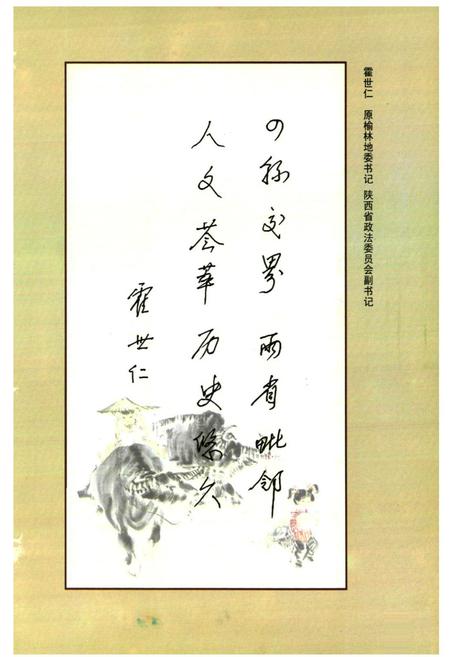 霍世仁 原榆林地委书记 陕西省政法委员会副书记
四縣交界 两省毗邻
人文荟萃 历史悠久
霍世仁